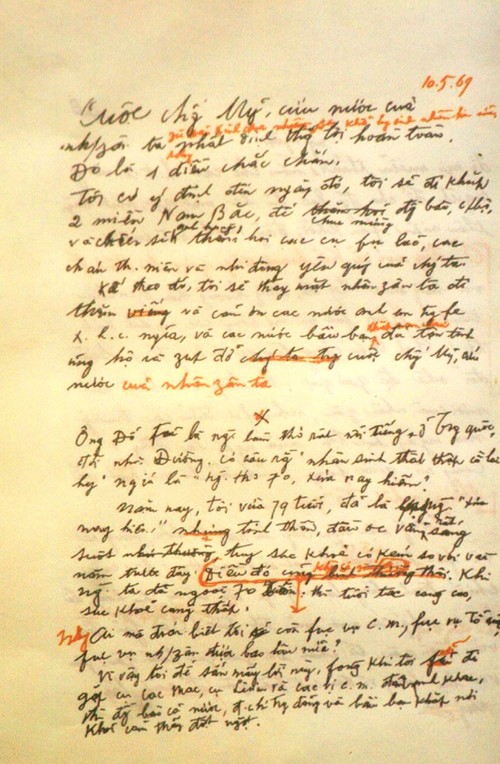 10.5.69
Cuộc chg Mỹ, cứu nước của
nh/zân ta phải hi sinh nhiều hơn nữa, song nhất định thg lợi hoàn toàn.
Đó là 1 điều chắc chắn.
Tôi có ý định đến ngày đó, tôi sẽ đi khắp
2 miền Nam Bắc, để thăm hỏi chúc mừng đg bào, c/bộ,
và chiến sĩ ta, thăm hỏi các cụ fụ lão, các
cháu th. niên và nhi đồng yêu quý của chg ta
Kế theo đó, tôi sẽ thay mặt nhân zân ta đi
thăm viếng và cảm ơn các nước anh em trg fe
x. h. c. nghĩa, và các nước bầu bạn đã tận tình
ủng hộ và zúp đỡ cuộc chg Mỹ, cứu
nước của nhân zân ta
X
Ông Đỗ Fủ là ng. làm thơ rất nổi tiếng ở Trg quốc,
đời nhà Đường. có câu rằng "nhân sinh thất thập cổ lai
hy" nghĩa là "ng. thọ 70, xưa nay hiếm".
Năm nay, tôi vừa 79 tuổi, đã là "xưa
nay hiếm" nhưng tinh thần, đầu óc vẫn rất sáng
suốt như thường, tuy sức khoẻ có kém so với vài
năm trước đây. Điều đó cũng bình thường thôi. Khi
ng ta đã ngoài 70 xuân. thì tuổi tác càng cao,
sức khoẻ càng thấp.
Nhg Ai mà đoán biết tôi sẽ còn fục vụ c. m., fục vụ Tổ q.,
fục vụ nh/zân được bao lâu nữa?
Vì vậy tôi để sẵn mấy lời này, fòng khi tôi sẽ đi
gặp cụ Các Mác, cụ Lênin và các vị c. m. đàn anh khác,
thì đg bào cả nước, đ. chí trg đảng và bầu bạn khắp nơi
khỏi cảm thấy đột ngột.